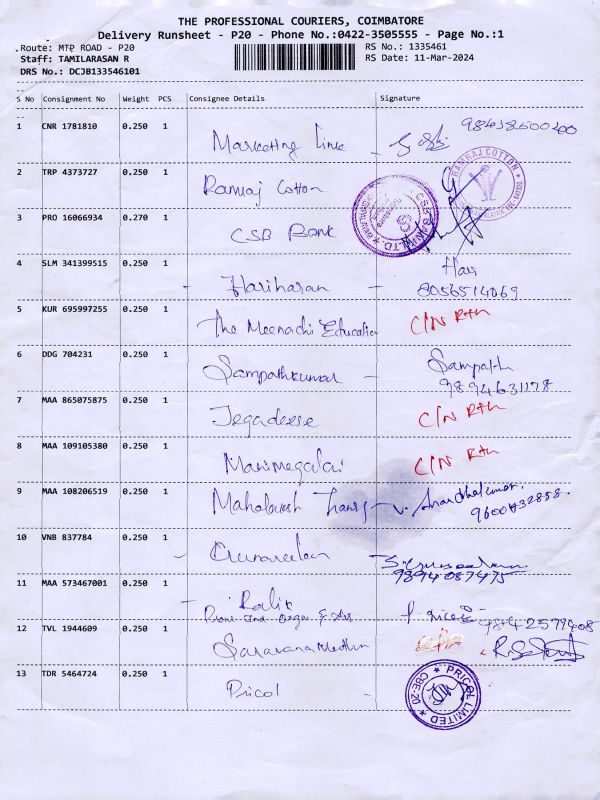 THE PROFESSIONAL COURIERS, COIMBATORE
Delivery Runsheet - P20 - Phone No.:0422-3505555 - Page No.:1
Route: MTP ROAD - P20 RS No.: 1335461
Staff: TAMILARASAN R RS Date: 11-Mar-2024
DRS No.: DCJB133546101
S No Consignment No Weight PCS Consignee Details Signature
1 CNR 1781810 0.250 1 Marketing Link 98438500200
2 TRP 4373727 0.250 1 Ramraj Cotton RAMRAJ COTTON
3 PRO 16066934 0.270 1 CSB Bank CSB BANK LTD
4 SLM 341399515 0.250 1 Hariharan Hari
8056514069
5 KUR 695997255 0.250 1 The Meenachi Education C/N Rtn
6 DDG 704231 0.250 1 Sampathkumar Sampath
9894631178
7 MAA 865075875 0.250 1 Jegadeese C/N Rtn
8 MAA 109105380 0.250 1 Manimegalai C/N Rtn
9 MAA 108206519 0.250 1 Mahalaksh Trans V. Anandhakumar.
9600432858.
10 VNB 837784 0.250 1 Gunaseelan
9894087475
11 MAA 573467001 0.250 1 Rafik
9842579408
12 TVL 1944609 0.250 1 Saravana Muthu
13 TDR 5464724 0.250 1 Pricol PRICOL LIMITED CBE-20